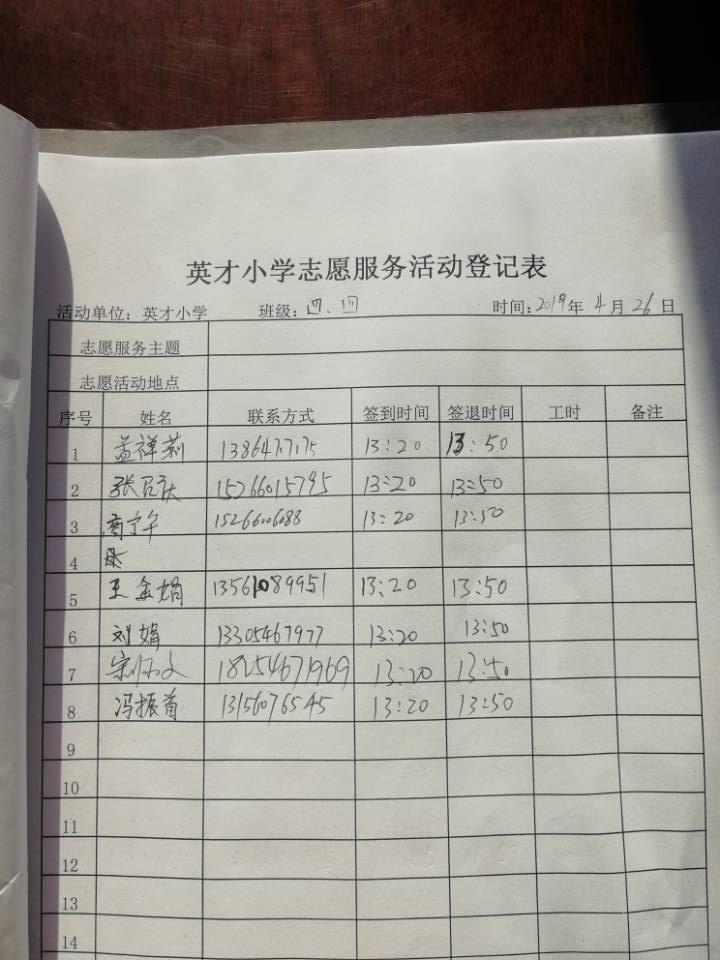 英才小学志愿服务活动登记表
活动单位：英才小学 班级：四、四 时间：2019年 4月 26日
志愿服务主题
志愿活动地点
序号 姓名 联系方式 签到时间 签退时间 工时 备注
1 孟祥莉 13:20 13:50
2 15266015795 13:20 13:50
3 15266006088 13:20 13:50
4
5 王金娟 13561089951 13:20 13:50
6 刘娟 13305467977 13:20 13:50
7 18254671969 13:20 13:50
8 冯振首 13156076545 13:20 13:50
9
10
11
12
13
14